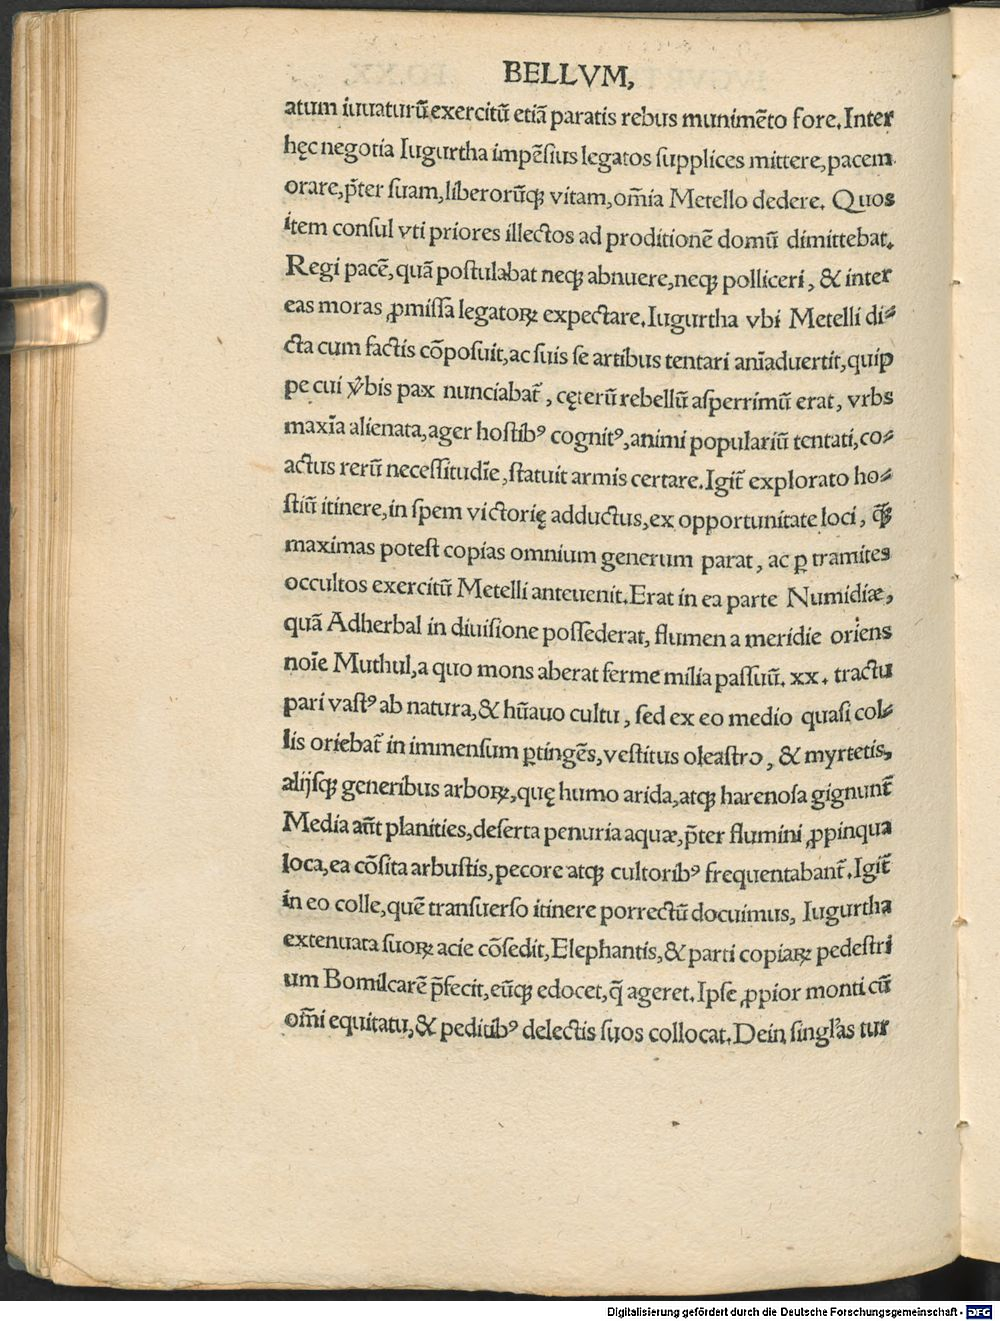 BELLVM,
atum iuuaturũ exercitũ etiã paratis rebus munimẽto fore. Inter
hęc negotia Iugurtha impẽsius legatos ſupplices mittere, pacem
orare, p̃ter ſuam, liberorũqꝫ vitam, om̃ia Metello dedere. Quos
item conſul vti priores illectos ad proditionẽ domũ dimittebat.
Regi pacẽ, quã poſtulabat neqꝫ abnuere, neqꝫ polliceri, & inter
eas moras ꝓmiſſa legatoꝝ expectare. Iugurtha vbi Metelli di⸗
cta cum factis cõpoſuit, ac ſuis ſe artibus tentari aniaduertit, quip
pe cui v̉bis pax nunciabat̃, cęterũ rebellũ aſperrimũ erat, vrbs
maxĩa alienata, ager hoſtibꝰ cognitꝰ, animi populariũ tentati, co⸗
actus rerũ neceſſitudĩe, ſtatuit armis certare. Igit̃ explorato ho⸗
ſtiũ itinere, in ſpem victorię adductus, ex opportunitate loci, q̃ꝫ
maximas poteſt copias omnium generum parat, ac ꝑ tramites
occultos exercitũ Metelli anteuenit. Erat in ea parte Numidiæ,
quã Adherbal in diuiſione poſſederat, flumen a meridie oriens
noĩe Muthul, a quo mons aberat ferme milia paſſuũ. xx. tractu
pari vaſtꝰ ab natura, & hũauo cultu, ſed ex eo medio quaſi col⸗
lis oriebat̃ in immenſum ꝑtingẽs, veſtitus oleaſtro, & myrtetis,
alijſqꝫ generibus arboꝝ, quę humo arida, atqꝫ harenoſa gignunt̃
Media aũt planities, deſerta penuria aquæ, p̃ter flumini ꝓpinqua
loca, ea cõſita arbuſtis, pecore atqꝫ cultoribꝰ frequentabant̃. Igit̃
in eo colle, quẽ tranſuerſo itinere porrectũ docuimus, Iugurtha
extenuata ſuoꝝ acie cõſedit, Elephantis, & parti copiaꝝ pedeſtri
um Bomilcarẽ p̃fecit, eũqꝫ edocet, q̃ ageret. Ipſe ꝓpior monti cũ
om̃i equitatu, & peditibꝰ delectis ſuos collocat. Dein ſingl̃as tur
Digitalisierung gefördert durch die Deutsche Forschungsgemeinschaft - DFG